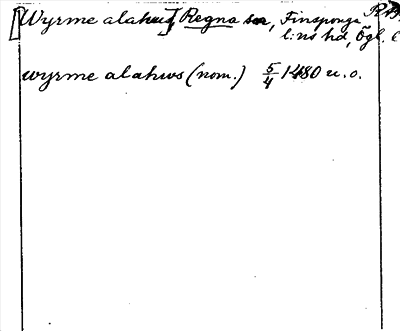 [Wyrme alahus] Regna sn, Finspånga
l:ns hd, Ögl.
wyrme alahws (nom.) 5/4 1480 u.o.